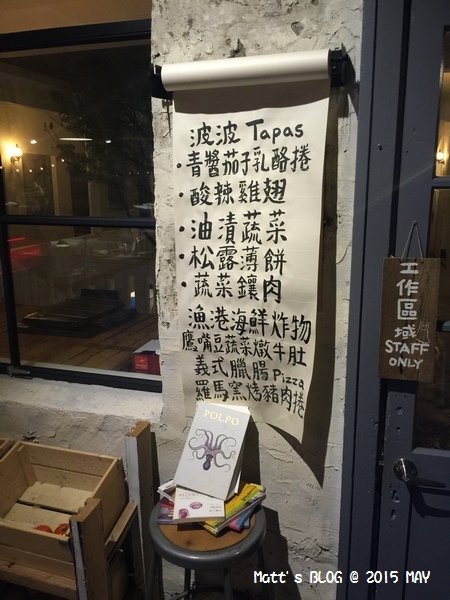 波波 Tapas
·青醬茄子乳酪捲
·酸辣雞翅
·油漬蔬菜
·松露薄餅
·蔬菜鑲肉
漁港海鮮炸物
鷹嘴豆蔬菜燉牛肚
義式臘腸 Pizza
羅馬窯烤豬肉捲
工作區域
STAFF
ONLY
POLPO
Matt's BLOG @ 2015 MAY